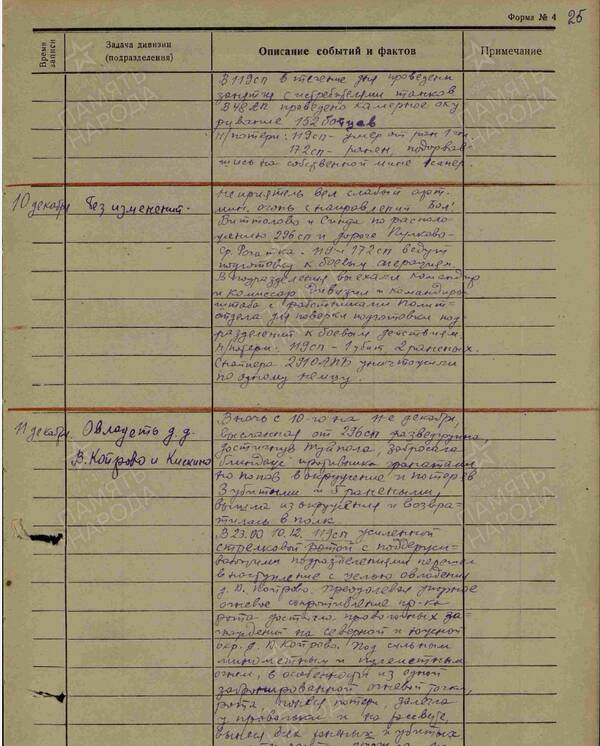 Форма № 4
25
Время записи
Задача дивизии (подразделения)
Описание событий и фактов
Примечание
В 119сп в течение дня проведены
занятия с истребителями танков
проведено камерное оку
ривание 152 бойцов
н/потери: 119сп - умер от ран 1 чел
172сп - ранен, подорвав-
шись на собственной мине 1 сапер
10 декабря
Без изменений.
Неприятель вел слабый арт.
мин. огонь с направлений Бол.
Виттолово и Синда по располо-
жению 296сп и дороге Пулково-
Ср. Рогатка. 119 и 172сп ведут
подготовку к боевым операциям.
В подразделения выехали командир
и комиссар дивизии и командиры
штаба с работниками полит-
отдела для поверки подготовки под
разделений к боевым действиям.
н/потери: 119сп - 1 убит, 2 раненых.
Снайпера уничтожили
по одному немцу.
11 декабря
Овладеть д.д.
В. Койрово и Кискино
В ночь с 10-го на 11-е декабря,
высланная от 296сп разведгруппа,
достигнув забросала
блиндаж противника гранатами
но попав в окружение и потеряв
3 убитыми и 5 ранеными,
вышла из окружения и возвра-
тилась в полк.
В 23.00 10.12. 119сп усиленной
стрелковой ротой с поддержи-
вающими подразделениями перешел
в наступление с целью овладения
д. В. Койрово. Преодолевая упорное
огневое сопротивление пр-ка
рота достигла проволочных за-
граждений на северной и южной
окр. д. В. Койрово. Под сильным
минометным и пулеметным
огнем, в особенности из одной
забронированной огневой точки,
рота, понеся потери, залегла
у проволоки и на рассвете,
вынеся всех раненых и убитых
ПАМЯТЬ НАРОДА